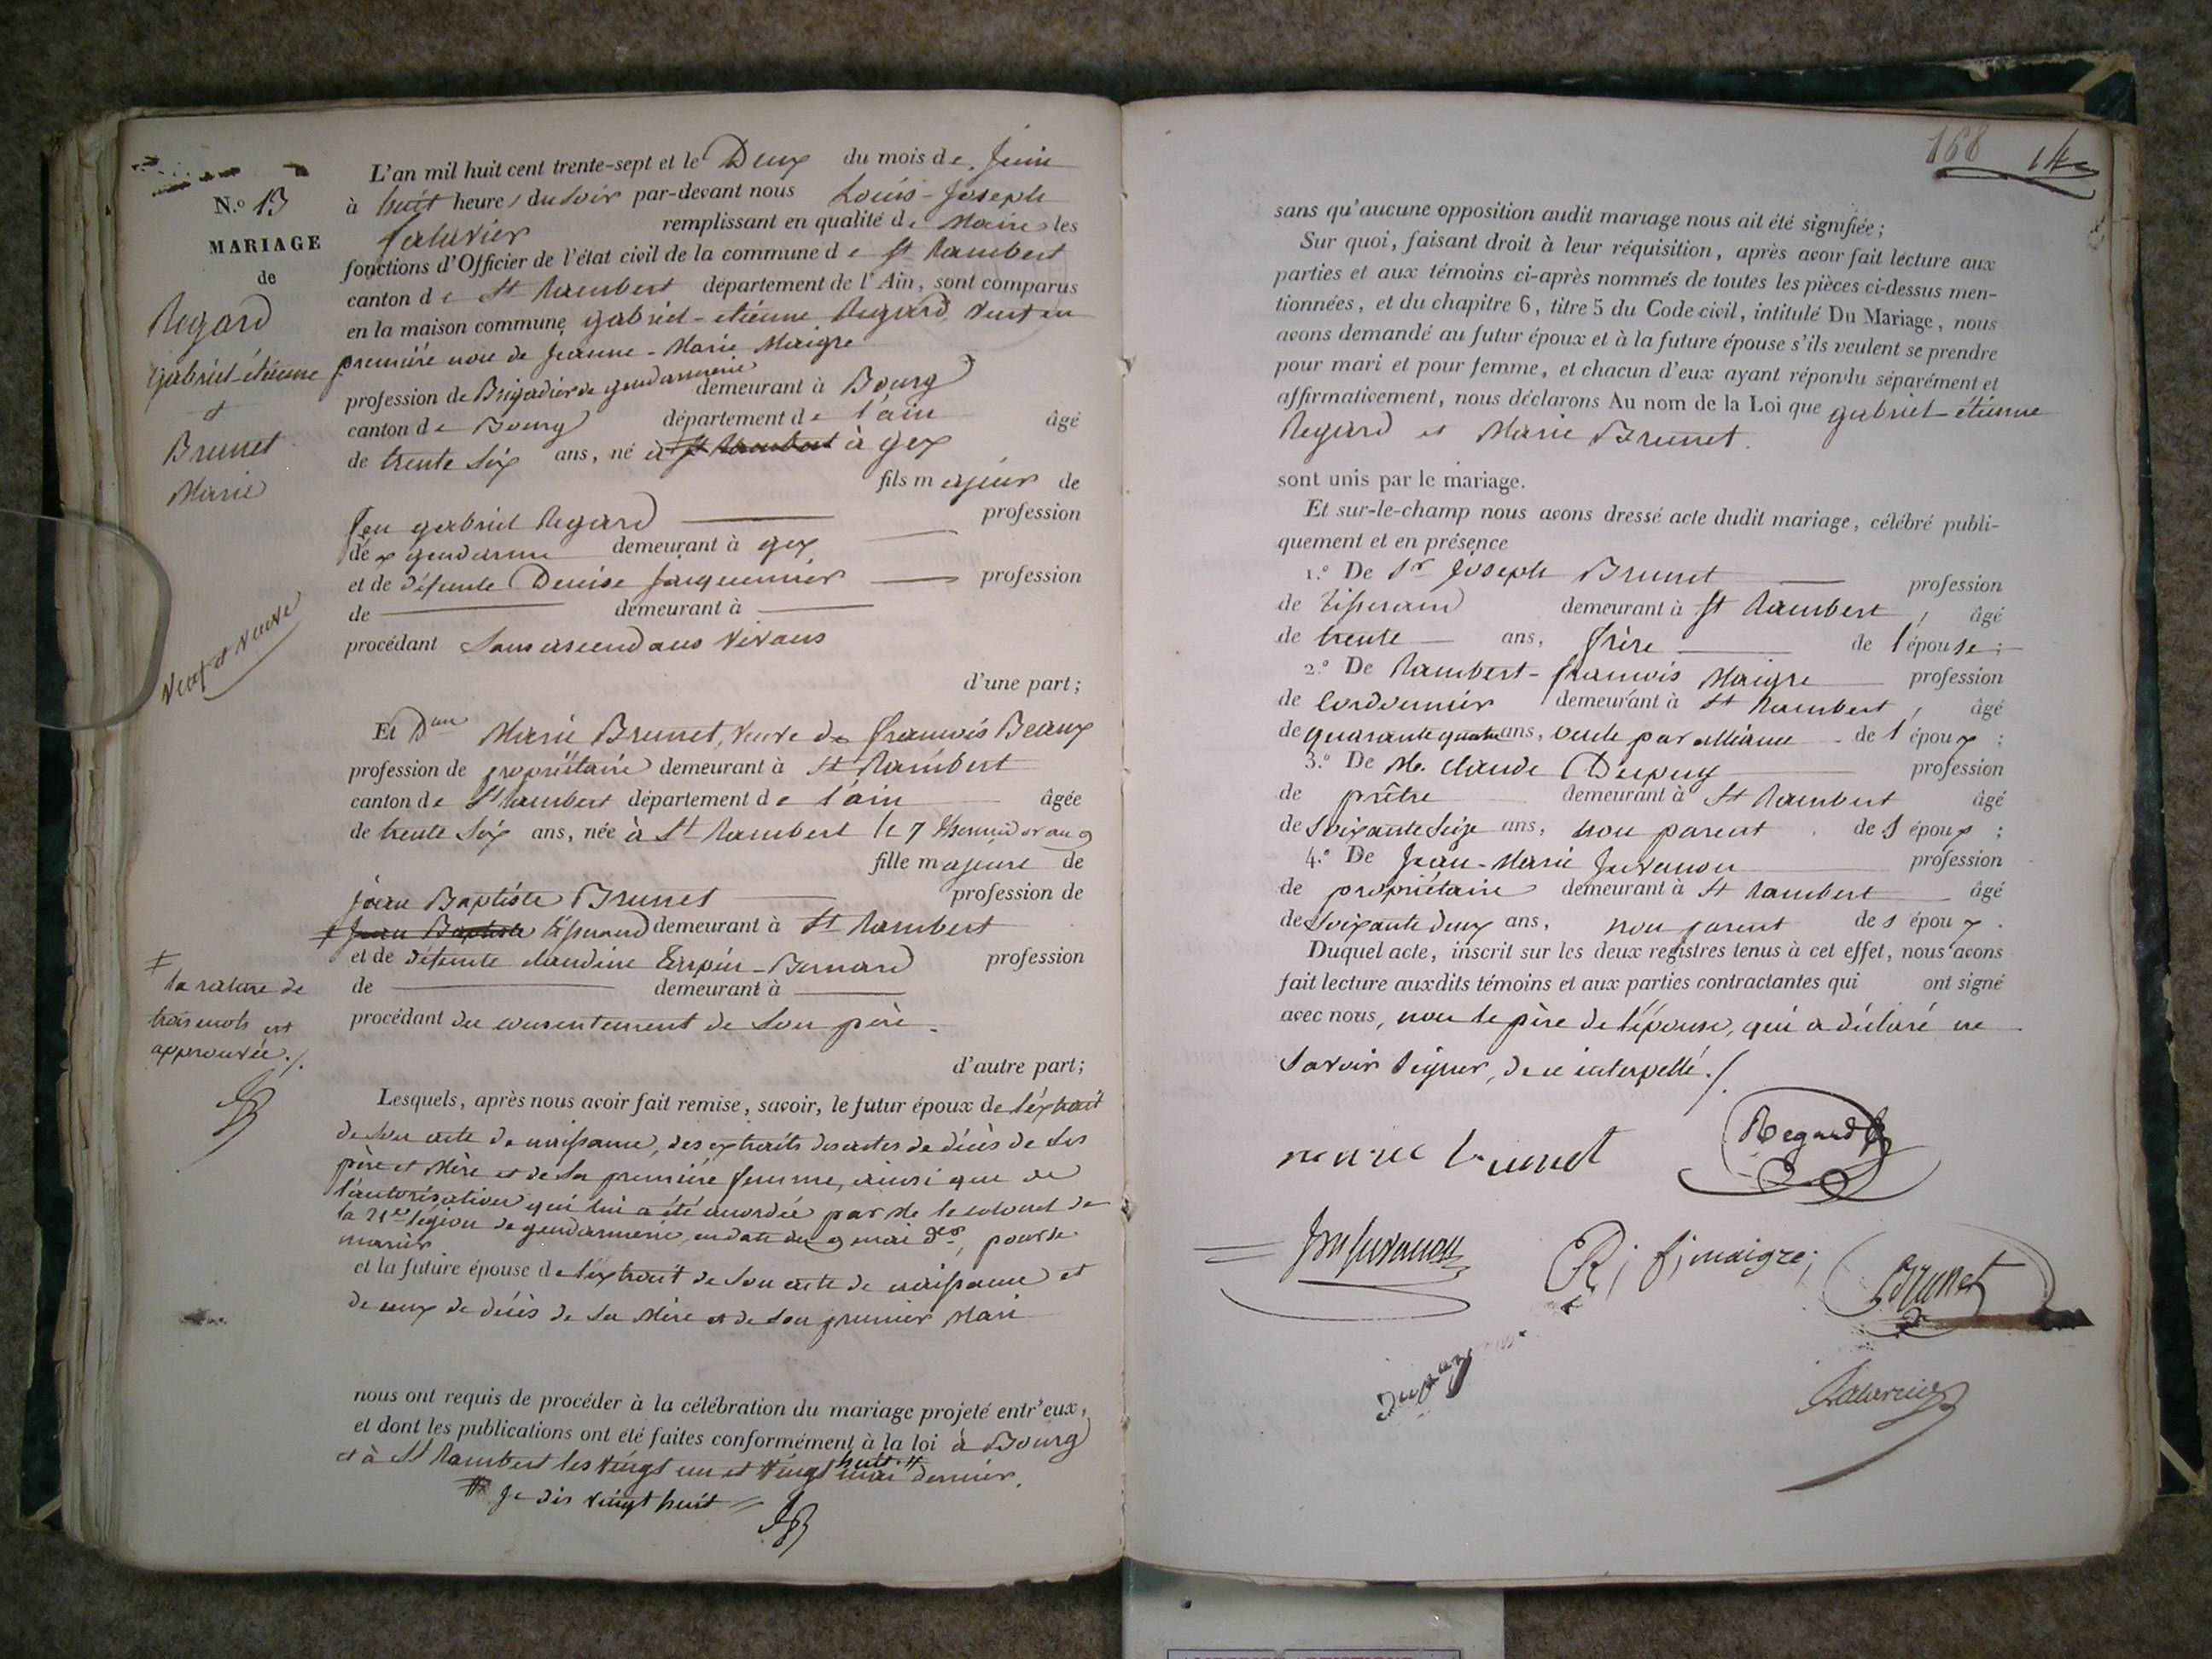 N.o 13
MARIAGE
de
Regard
Gabriel-étienne
et
Brunet
Marie
Veuf et veuve
ǂ
la rature de
trois mots est
approuvée ./.
L'an mil huit cent trente-sept et le Deux du mois de Juin
à huit heures du soir par-devant nous Louis-Joseph
remplissant en qualité de Maire les
fonctions d'Officier de l'état civil de la commune de St Rambert
canton de St Rambert département de l'Ain, sont comparus
en la maison commune gabriel-etienne Regard, veuf en
première noce de Jeanne-Marie Maigre
profession de Brigadier de gendarmerie demeurant à Bourg
canton de Bourg département de l'ain âgé
de trente six ans, né à St Rambert à gex
fils majeur de
feu gabriel Regard profession
de ex gendarme demeurant à gex
et de défunte Denise Jacquemier profession
de demeurant à
procédant Sans ascendans vivans
d'une part;
Et Dme Marie Brunet, veuve de françois Beaux
profession de propriétaire demeurant à St Rambert
canton de St Rambert département de l'ain âgée
de trente six ans, née à St Rambert le 7 thermidor an 9
fille majeure de
jean Baptiste Brunet profession de
ǂ Jean Baptiste tisserand demeurant à St Rambert
et de défunte claudine Bernard profession
de demeurant à
procédant du consentement de son père.
d'autre part;
Lesquels, après nous avoir fait remise, savoir, le futur époux de l'extrait
de son acte de naissance, des extraits des actes de décès de ses
père et Mère et de sa première femme, ainsi que de
l'autorisation qui lui a été accordée par Mr le colonel de
la 21e légion de gendarmerie, en date du 9 mai der, pour se
marier
et la future épouse de l'extrait de son acte de naissance et
de ceux de décès de sa Mère et de son premier Mari
nous ont requis de procéder à la célébration du mariage projeté entr'eux,
et dont les publications ont été faites conformément à la loi à Bourg
et à St Rambert les vingt un et vingt huit mai dernier.
Je dis vingt huit
168 14
sans qu'aucune opposition audit mariage nous ait été signifiée;
Sur quoi, faisant droit à leur réquisition, après avoir fait lecture aux
parties et aux témoins ci-après nommés de toutes les pièces ci-dessus men-
tionnées, et du chapitre 6, titre 5 du Code civil, intitulé Du Mariage, nous
avons demandé au futur époux et à la future épouse s'ils veulent se prendre
pour mari et pour femme, et chacun d'eux ayant répondu séparément et
affirmativement, nous déclarons Au nom de la Loi que gabriel-étienne
Regard et Marie Brunet.
sont unis par le mariage.
Et sur-le-champ nous avons dressé acte dudit mariage, célébré publi-
quement et en présence
1.o De Sr Joseph Brunet profession
de tisserand demeurant à St Rambert, âgé
de trente ans, frère de l'épouse;
2.o De Rambert-françois Maigre profession
de Cordonnier demeurant à St Rambert, âgé
de quarante quatre ans, oncle par alliance de l'époux;
3.o De M. claude Dupuy profession
de prêtre demeurant à St Rambert âgé
de soixante seize ans, non parent des époux;
4.o De Jean-Marie Juvanon profession
de propriétaire demeurant à St Rambert âgé
de soixante deux ans, non parent des époux.
Duquel acte, inscrit sur les deux registres tenus à cet effet, nous avons
fait lecture auxdits témoins et aux parties contractantes qui ont signé
avec nous, non le père de l'épouse, qui a déclaré ne
savoir signer, de ce interpellé ./.
marie brunet Regard
Juvanon R; f; maigre; Brunet
Dupuy